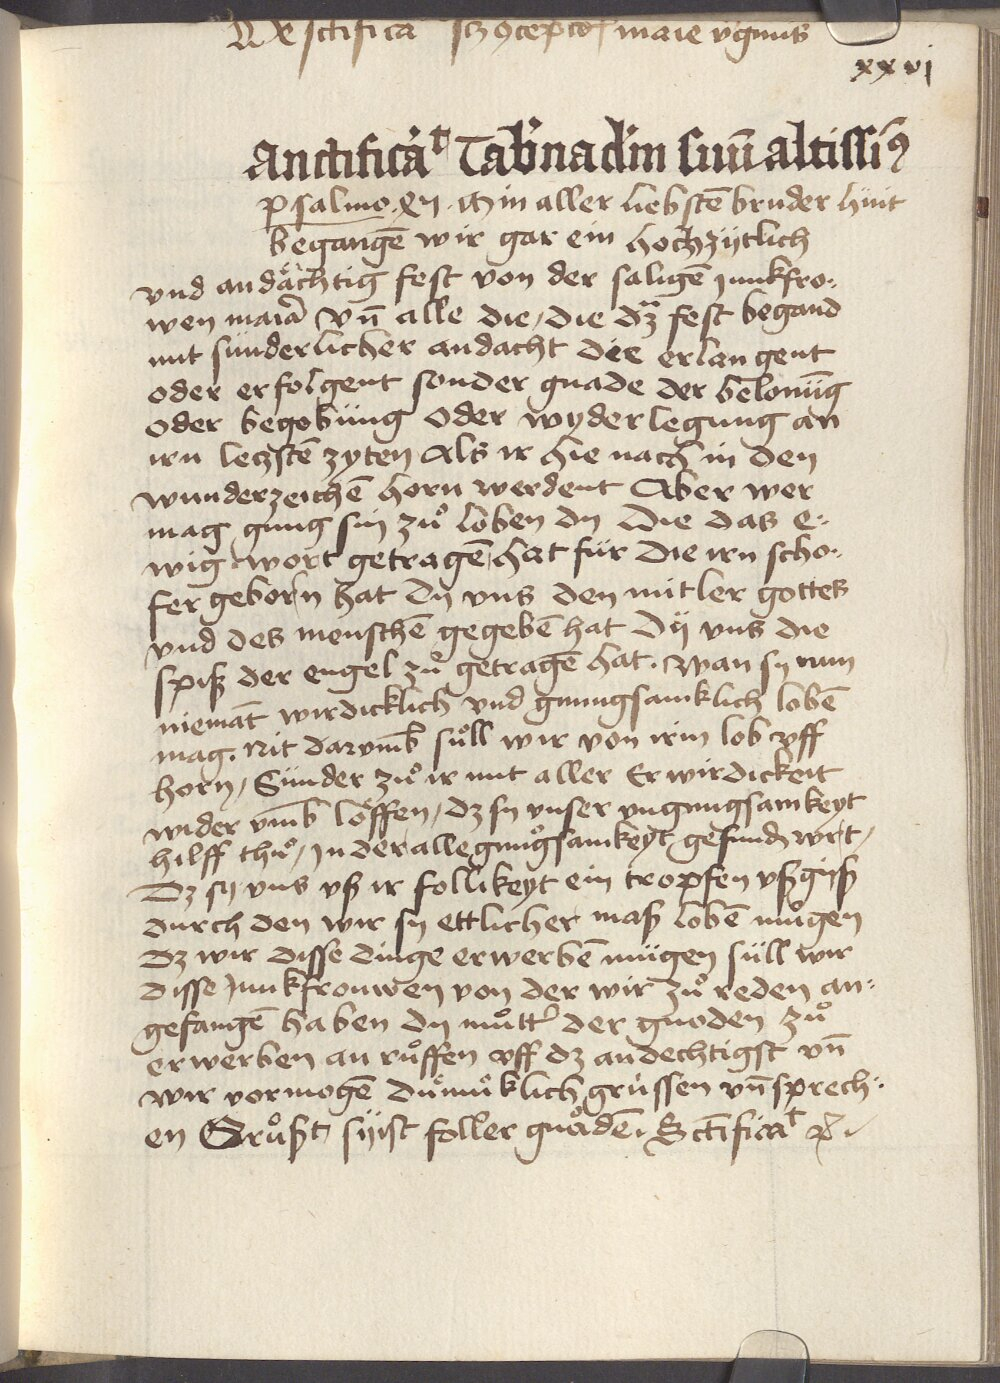 De sctifica scz ꝯcepcō maie v̾ginis
xxvi
anctificāᵗ Tab̾nacl̾m suū altissiꝰ
psalmo. xlv. Min aller liebstē bruder hüit
begangē wir gar ein hochzÿtlich
vnd andåchtig fest von der saligē junkfro⸗
wen maiā vn̄ alle die / die dz fest begand
mit sünderlicher andacht die erlangent
oder erfolgent sonder gnade der belonūg
oder begobüng oder wyderlegung an
irn leczstē zyten Als ir hie nach in den
wunderzeichē horn werdent Aber wer
mag gnug sin zuͦ loben dy Die das e⸗
wig wort getragē hat für die irn scho⸗
fer geborn hat Dy vns den mitler gottes
vnd des menschē gegebē hat Dÿ vns die
spiß der engel zuͦ getragē hat. wan sy nun
niemāt wirdicklich vnd gnungsamklich lobē
mag. Nit darvmb süll wir von irm lob vff
horn / Sünder zuͦ ir mit aller Erwirdickeit
wider vmb loͤffen / dz sy vnser vngnugsamkeyt
hilff thuͦ / jn der alle gnuͦgsamkeyt gefundē wrt /
Dz sy vns vß ir follikeyt ein tropfen vßgiß
durch den wir sy ettlicher maß lobē muͤgen
Dz wir disse dinge erwerbē mügen süll wir
disse junkfrouwen von der wir zuͦ reden an⸗
gefangē haben dy muͦtt̾ der gnoden zuͦ
erwerben an ruͦffen vff dz andechtigst vn̄
wir vormogē duͤmuͤklich gruͤssen vn̄ sprech⸗
en Gruͤßt syist foller gnådē. Sctīficāᵗ ꝛc̄.